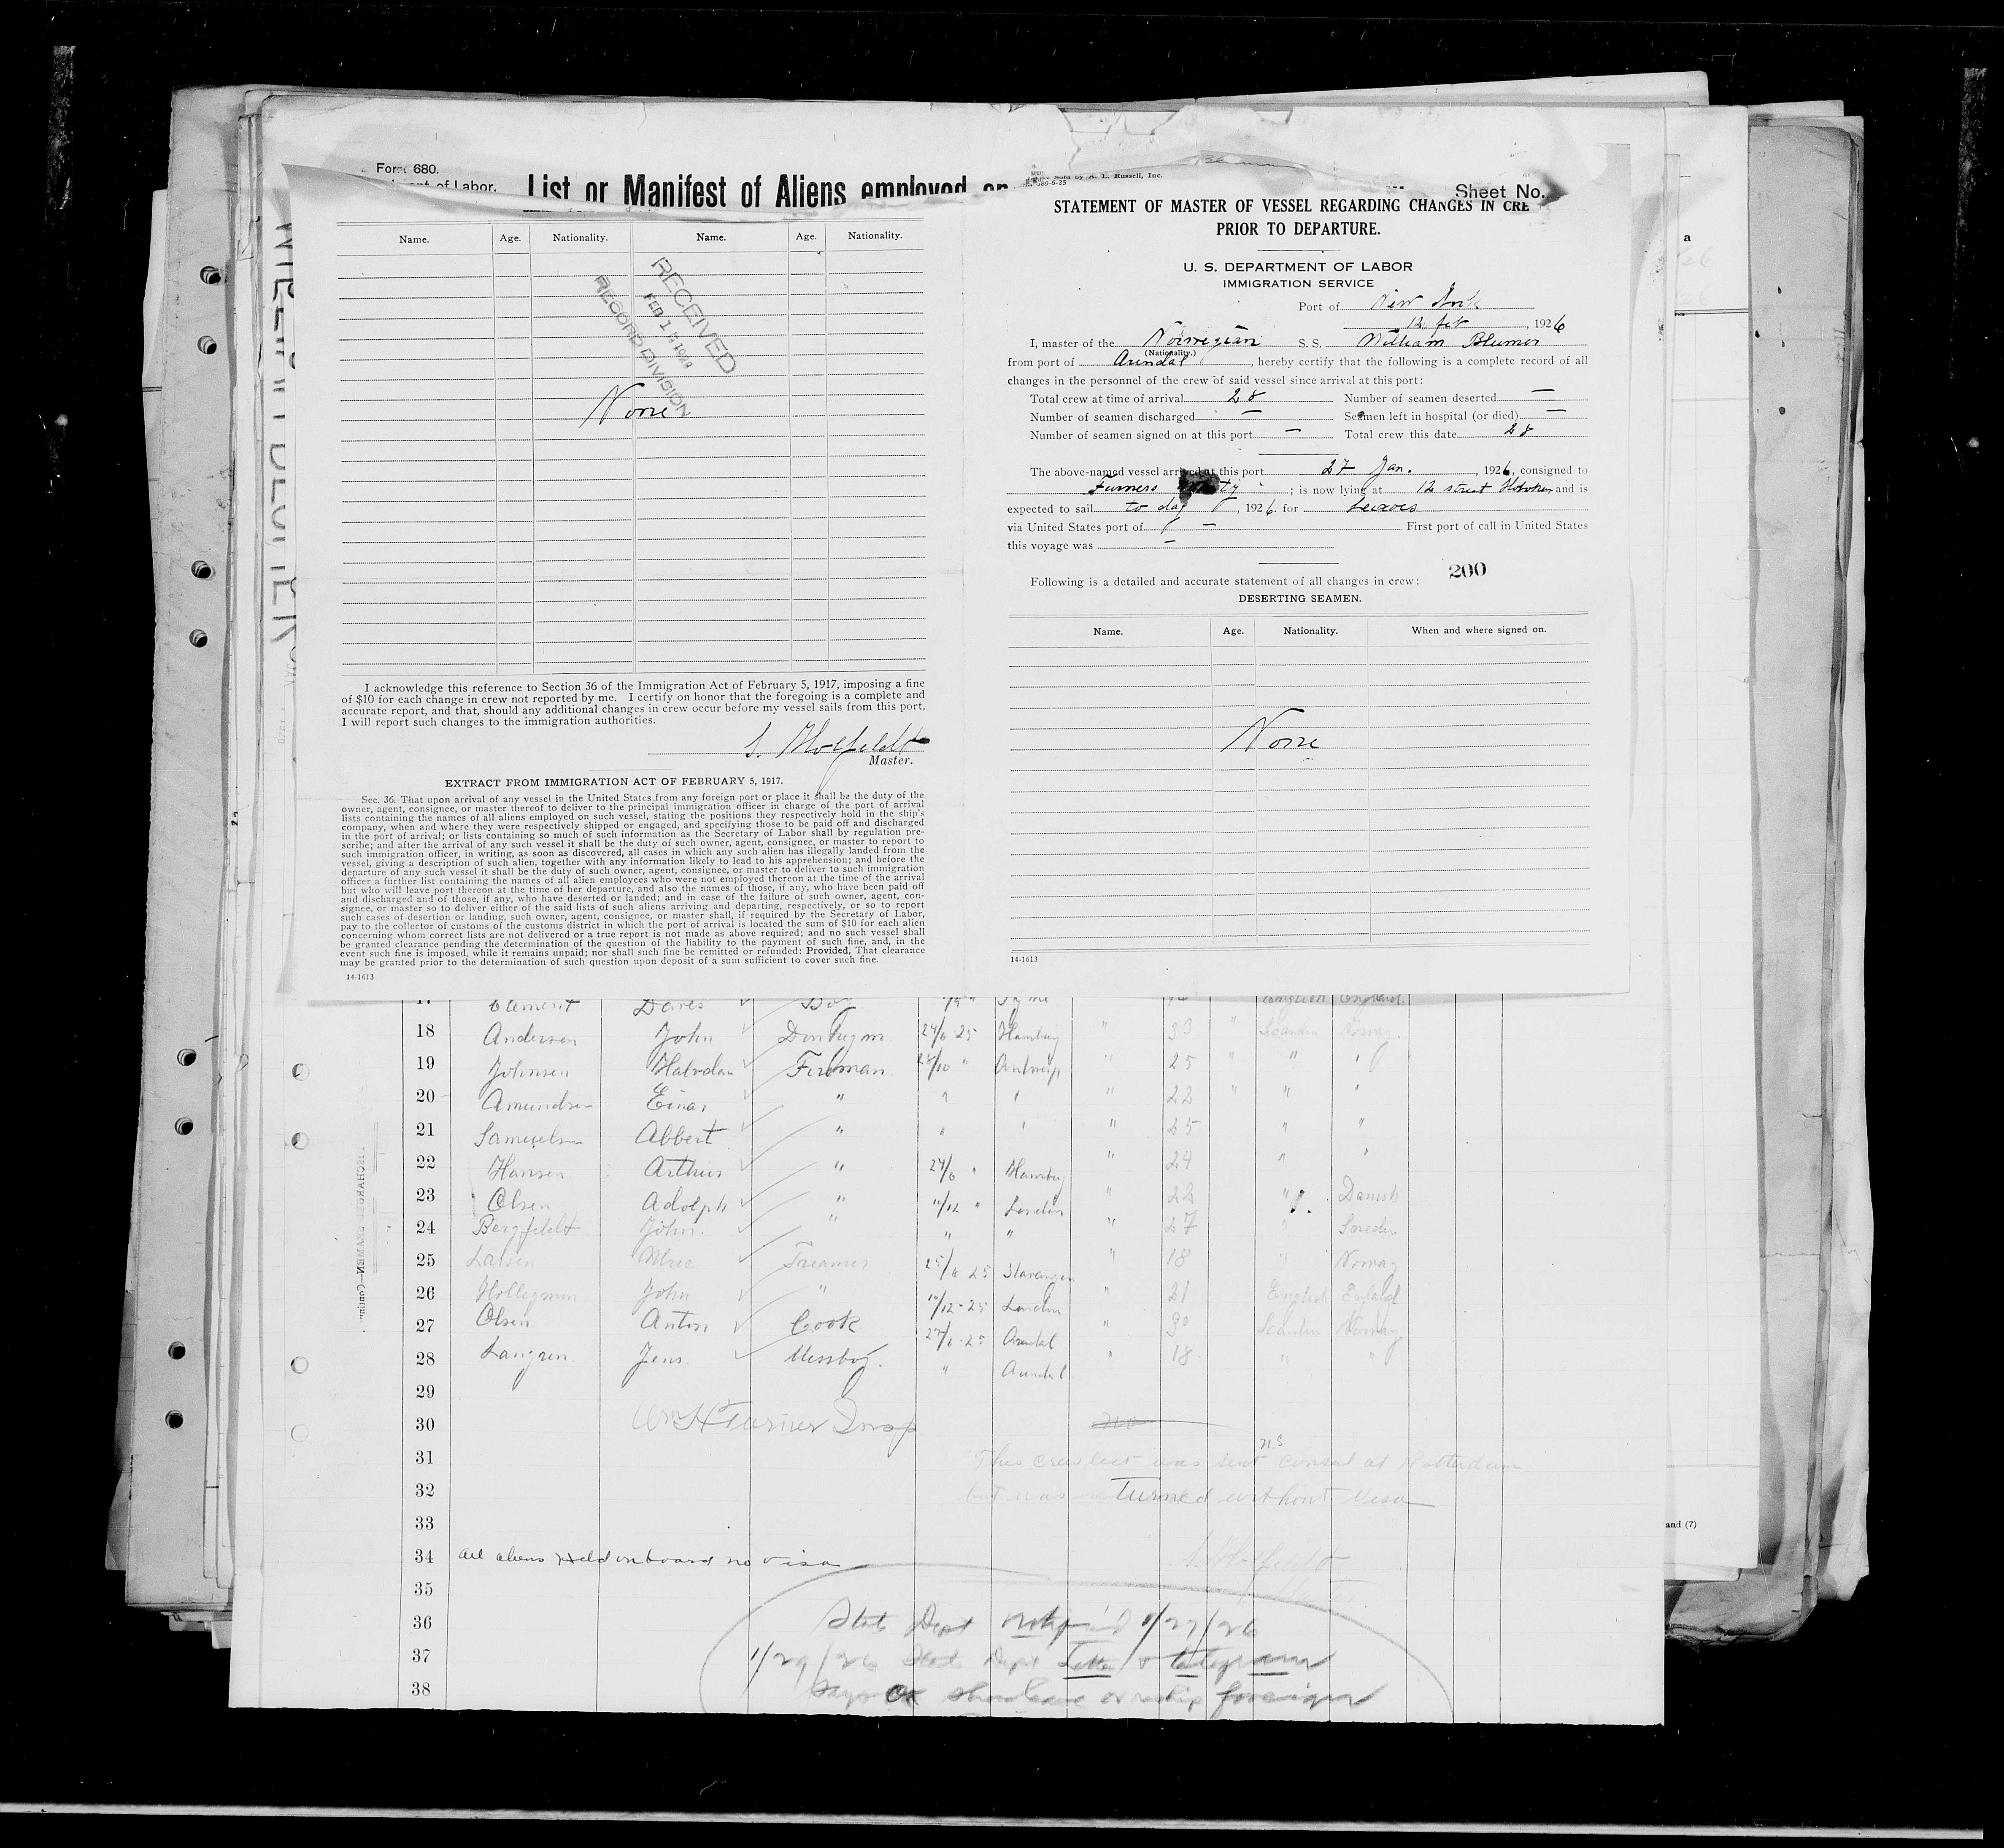 Form 680.
of Labor.
List or Manifest of Aliens employed on
Sheet No.
Name. Age. Nationality. Name. Age. Nationality.
RECEIVED
FEB
RECORD DIVISION
None
I acknowledge this reference to Section 36 of the Immigration Act of February 5, 1917, imposing a fine
of $10 for each change in crew not reported by me. I certify on honor that the foregoing is a complete and
accurate report, and that, should any additional changes in crew occur before my vessel sails from this port,
I will report such changes to the immigration authorities.
Master.
EXTRACT FROM IMMIGRATION ACT OF FEBRUARY 5, 1917.
Sec. 36. That upon arrival of any vessel in the United States from any foreign port or place it shall be the duty of the
owner, agent, consignee, or master thereof to deliver to the principal immigration officer in charge of the port of arrival
lists containing the names of all aliens employed on such vessel, stating the positions they respectively hold in the ship's
company, when and where they were respectively shipped or engaged, and specifying those to be paid off and discharged
in the port of arrival; or lists containing so much of such information as the Secretary of Labor shall by regulation pre-
scribe; and after the arrival of any such vessel it shall be the duty of such owner, agent, consignee, or master to report to
such immigration officer, in writing, as soon as discovered, all cases in which any such alien has illegally landed from the
vessel, giving a description of such alien, together with any information likely to lead to his apprehension; and before the
departure of any such vessel it shall be the duty of such owner, agent, consignee, or master to deliver to such immigration
officer a further list containing the names of all alien employees who were not employed thereon at the time of the arrival
but who will leave port thereon at the time of her departure, and also the names of those, if any, who have been paid off
and discharged and of those, if any, who have deserted or landed; and in case of the failure of such owner, agent, con-
signee, or master so to deliver either of the said lists of such aliens arriving and departing, respectively, or so to report
such cases of desertion or landing, such owner, agent, consignee, or master shall, if required by the Secretary of Labor,
pay to the collector of customs of the customs district in which the port of arrival is located the sum of $10 for each alien
concerning whom correct lists are not delivered or a true report is not made as above required; and no such vessel shall
be granted clearance pending the determination of the question of the liability to the payment of such fine, and, in the
event such fine is imposed, while it remains unpaid; nor shall such fine be remitted or refunded: Provided, That clearance
may be granted prior to the determination of such question upon deposit of a sum sufficient to cover such fine.
14-1613
Sold by A. L. Russell, Inc.
STATEMENT OF MASTER OF VESSEL REGARDING CHANGES IN CRE
PRIOR TO DEPARTURE.
U. S. DEPARTMENT OF LABOR
IMMIGRATION SERVICE
Port of New York
12 feb, 1926
I, master of the Norwegian S. S. William Blumer
(Nationality.)
from port of Arendal, hereby certify that the following is a complete record of all
changes in the personnel of the crew of said vessel since arrival at this port:
Total crew at time of arrival 28 Number of seamen deserted —
Number of seamen discharged — Seamen left in hospital (or died) —
Number of seamen signed on at this port — Total crew this date 28
The above-named vessel arrived at this port 27 Jan., 1926, consigned to
Furness; is now lying at 12 street Hoboken and is
expected to sail to day, 1926. for Leixoes
via United States port of — First port of call in United States
this voyage was —
Following is a detailed and accurate statement of all changes in crew: 200
DESERTING SEAMEN.
Name. Age. Nationality. When and where signed on.
None
14-1613
and (7)
17 Clement Davis Boy English England
18 Andersen John Donkeym 24/6 25 Hamburg " 33 " Scandin Norway.
19 Johnsen Halvdan Fireman 28/10 " Antwerp " 25 " " "
20 Amundsen Einar " " " " 22 " " "
21 Samuelsen Abbert " " " " 25 " "
22 Hansen Arthur " 24/6 " Hamburg " 24 " "
23 Olsen Adolph " 11/12 " London " 22 " Danish
24 Bergfeldt John. " " " " 27 " Sweden
25 Larsen Trimmer 25/6 25 Stavanger " 18 " Norway
26 John " 11/12-25 London " 21 English England
27 Olsen Anton Cook 27/6-25 Arendal " 30 Scandin Norway
28 Langren Jens. Messboy. " Arendal " 18. " "
29
30 Wm H Turner Insp
31 This crew list was sent consul at Rotterdam
32 but was returned without visa
33
34 all aliens held on board no visa
35
36 State Dept notif'd 1/27/26
37 1/29/26 State Dept Letter & telegram
38 says OK shore leave or reship foreign